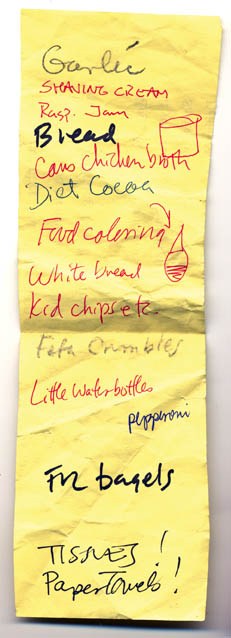 Garlic
SHAVING CREAM
Rasp. Jam
Bread
Cans chicken broth
Diet Cocoa
Food coloring
White bread
Kid chips etc.
Feta Crumbles
Little Water bottles
pepperoni
FRZ bagels
TISSUES!
Paper Towels!